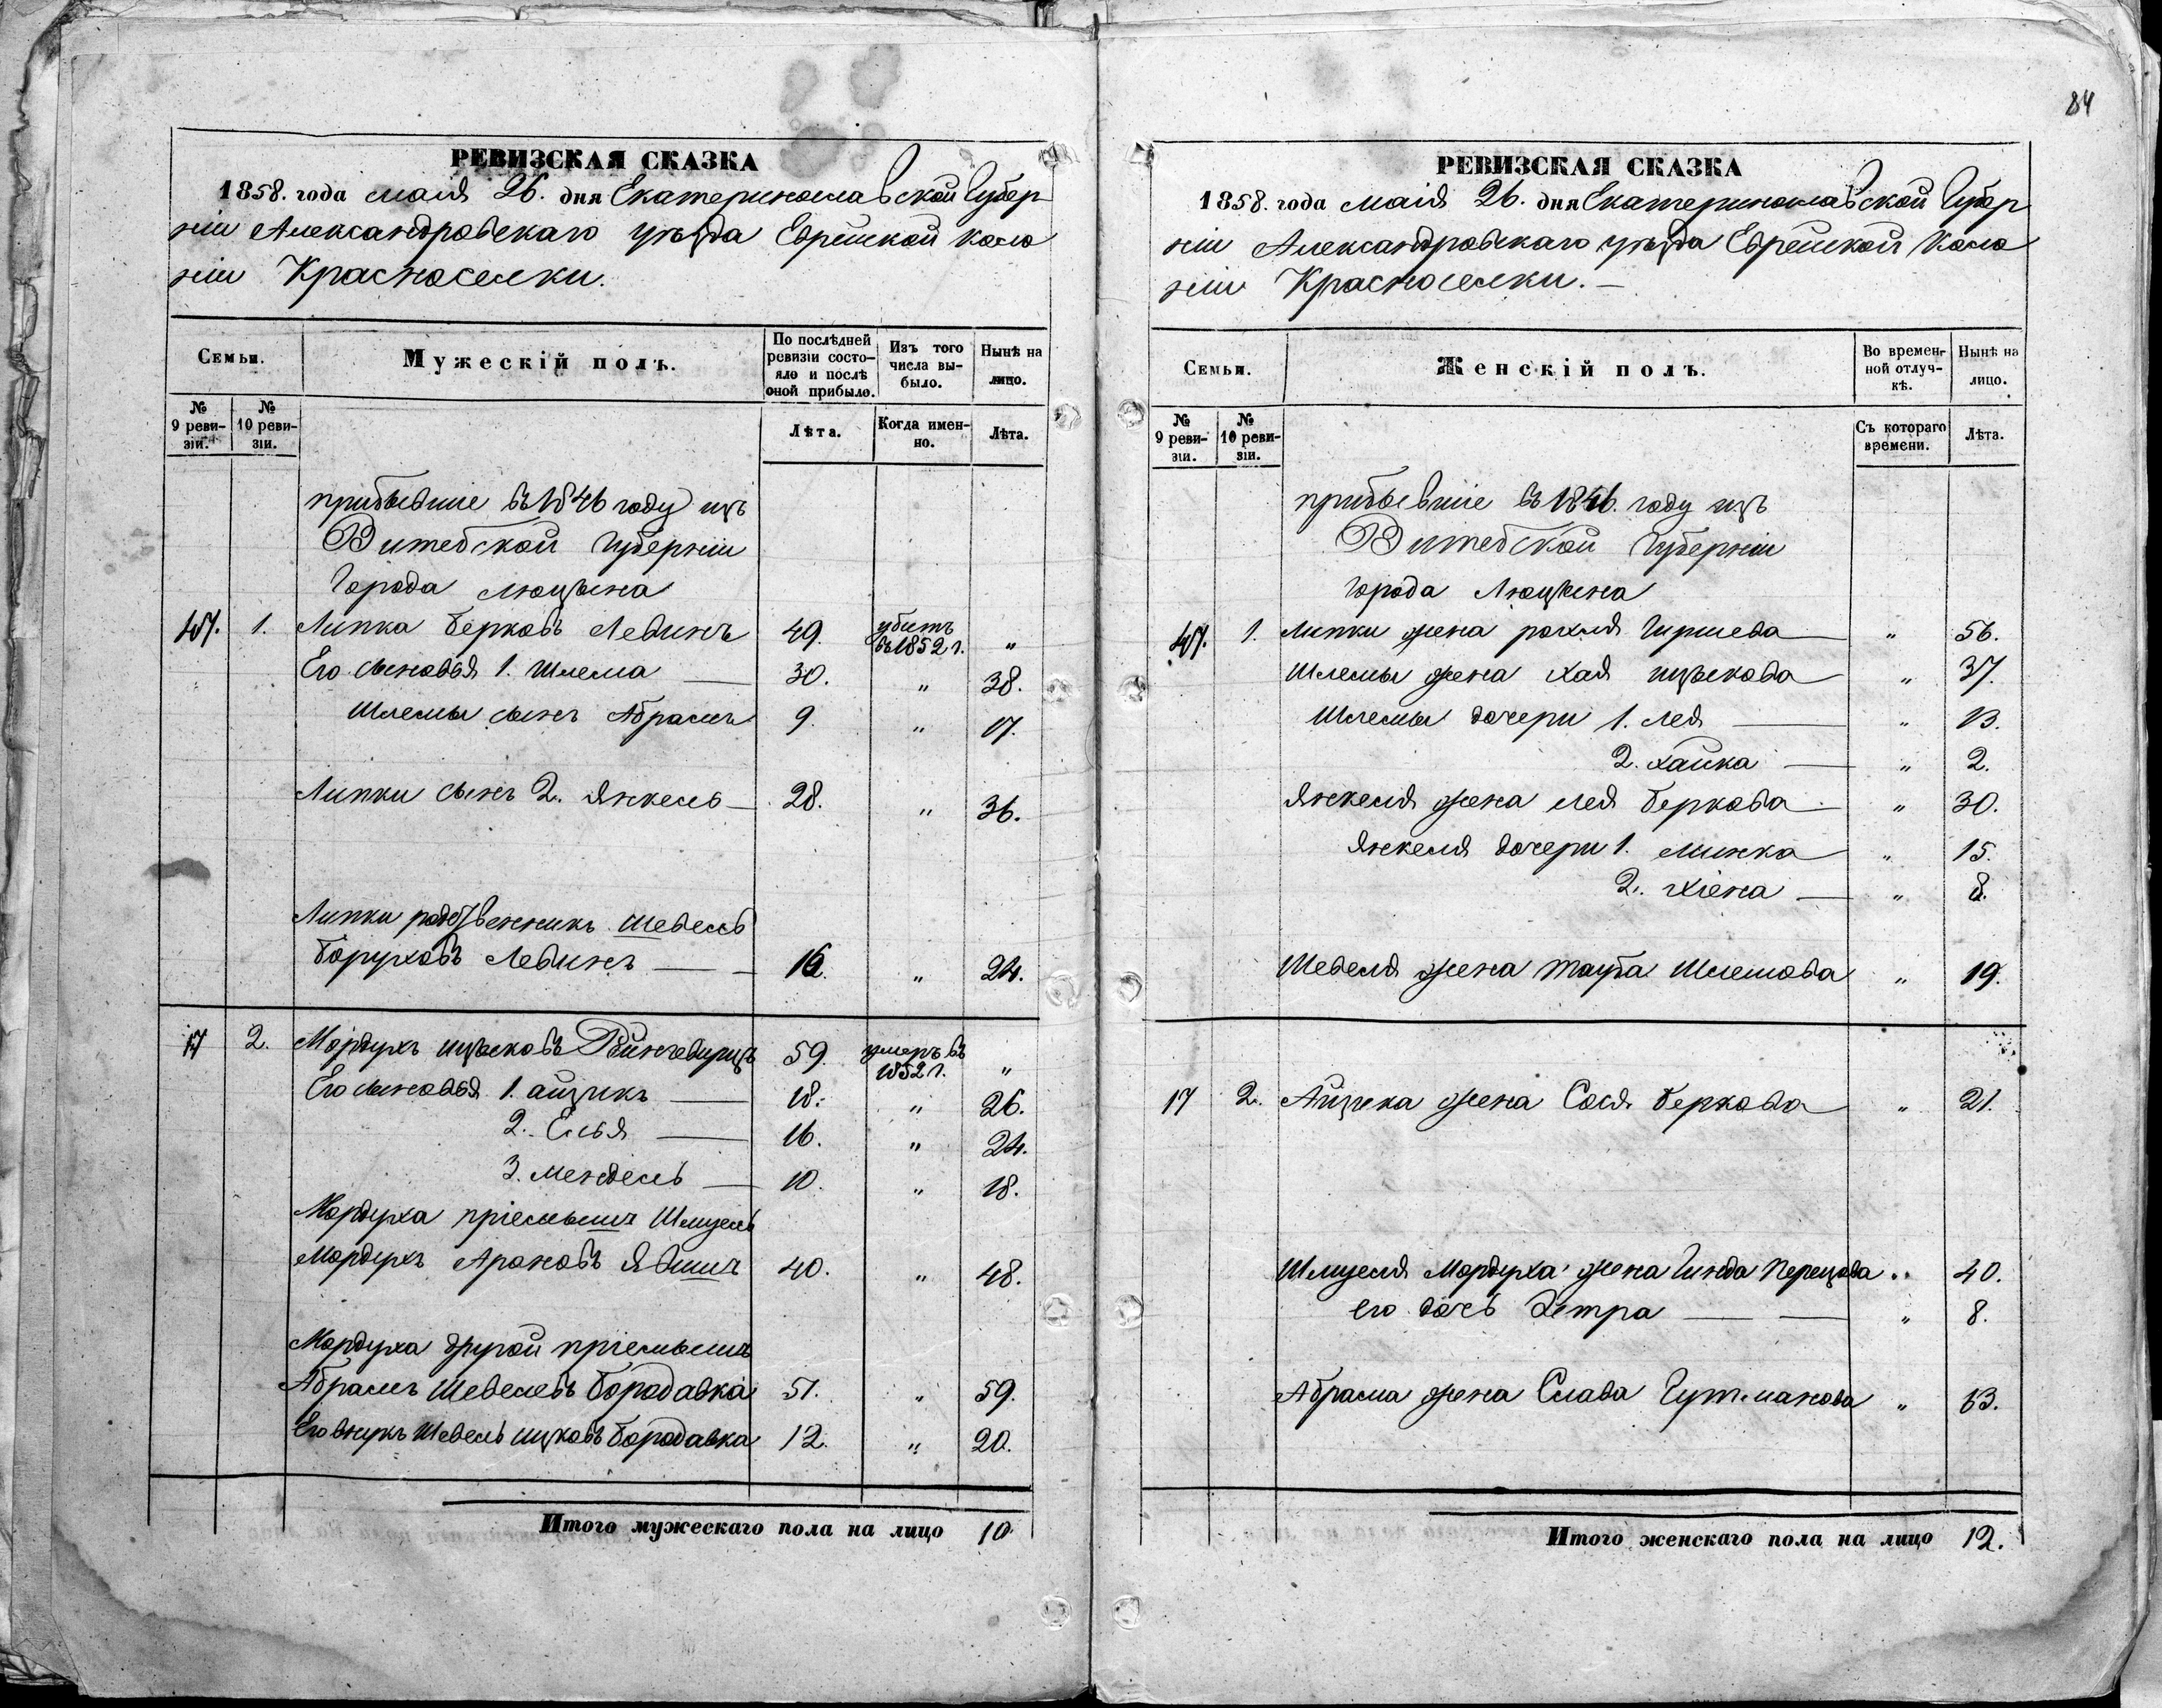 РЕВИЗСКАЯ СКАЗКА
1858. года маія 26. дня Екатеринославской Губер
ніи Александровскаго уѣзда Еврейской коло
ніи Красноселки.
Семьи.
Мужескій полъ.
По послѣдней ревизіи состояло и послѣ оной прибыло.
Изъ того числа выбыло.
Нынѣ на лицо.
№ 9 ревизіи.
№ 10 ревизіи.
Лѣта.
Когда именно.
Лѣта.
прибывшіе въ 1846 году изъ
Витебской Губерніи
Города Люцына
47. 1. Липка Берковъ Левинъ 49. убитъ въ 1852 г. "
Его сыновья 1. Шлема — 30. " 38.
Шлемы сынъ Абрамъ 9. " 17.
Липки сынъ 2. Янкель — 28. " 36.
Липки родственникъ Шевель
Боруховъ Левинъ — 16. " 24.
17 2. Мордухъ Ицыковъ 59. умеръ въ 1852 г. "
Его сыновья 1. Айзикъ — 18. " 26.
2. Елья — 16. " 24.
3. Мендель — 10. " 18.
Мордуха пріемышъ Шмуель
Мордухъ Ароновъ Явичъ 40. " 48.
Мордуха другой пріемышъ
Абрамъ Шевелевъ Бородавка 51. " 59.
Его внукъ Шевель Ицковъ Бородавка 12. " 20.
Итого мужескаго пола на лицо 10
84
РЕВИЗСКАЯ СКАЗКА
1858. года маія 26. дня Екатеринославской Губер
ніи Александровскаго уѣзда Еврейской Коло
ніи Красноселки. —
Семьи.
Женскій полъ.
Во временной отлучкѣ.
Нынѣ на лицо.
№ 9 ревизіи.
№ 10 ревизіи.
Съ котораго времени.
Лѣта.
прибывшіе въ 1846. году изъ
Витебской Губерніи
города Люцына
47. 1. Липки жена Рохля Гиршева — " 56.
Шлемы жена Хая Ицыкова — " 37.
Шлемы дочери 1. Лея — " 13.
2. Хайка — " 2.
Янкеля жена Лея Беркова — " 30.
Янкеля дочери 1. Минка — " 15.
2. Хіена — " 8.
Шевеля жена Тауба Шлемова " 19.
17 2. Айзика жена Сося Беркова — " 21.
Шмуеля Мордуха жена Гинда Перецова " 40.
его дочь — " 8.
Абрама жена Слава Гутманова " 63.
Итого женскаго пола на лицо 12.